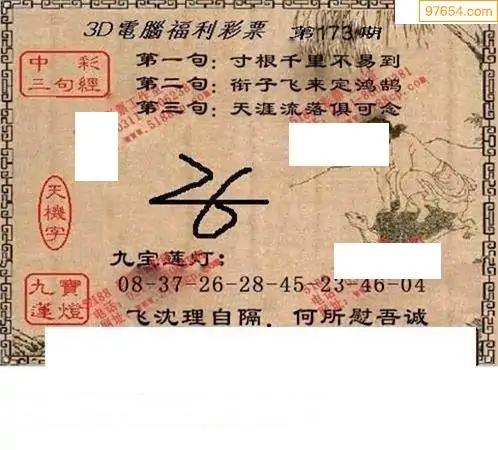 97654.com
3D電腦福利彩票 第173期
中彩
三句經
第一句:寸根千里不易到
第二句:衔子飞来定鸿鹄
第三句:天涯流落俱可念
天機字
26
九宝莲灯:
九寶
蓮燈
08-37-26-28-45-23-46-04
飞沈理自隔,何所慰吾诚